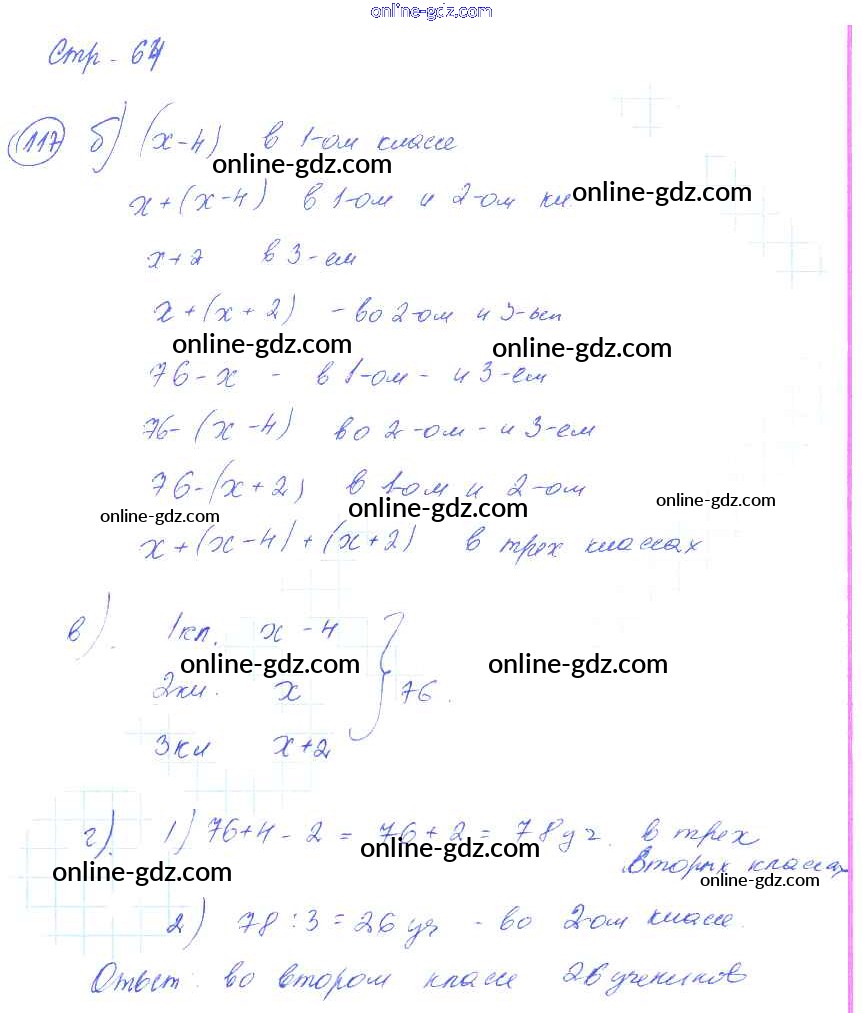 online-gdz.com
Стр. 64
117 б) (x-4) в 1-ом классе
online-gdz.com
x+(x-4) в 1-ом и 2-ом кл
online-gdz.com
x+2 в 3-ем
x+(x+2) - во 2-ом и 3-ем
online-gdz.com online-gdz.com
76-x - в 1-ом - и 3-ем
76-(x-4) во 2-ом - и 3-ем
76-(x+2) в 1-ом и 2-ом
online-gdz.com online-gdz.com online-gdz.com
x+(x-4)+(x+2) в трех классах
в). 1кл. x-4
online-gdz.com online-gdz.com
2кл. x } 76.
3кл x+2
г). 1) 76+4-2 = 76+2 = 78уч. в трех
вторых классах
online-gdz.com online-gdz.com online-gdz.com
2) 78:3=26 уч - во 2-ом классе.
Ответ: во втором классе 26 учеников